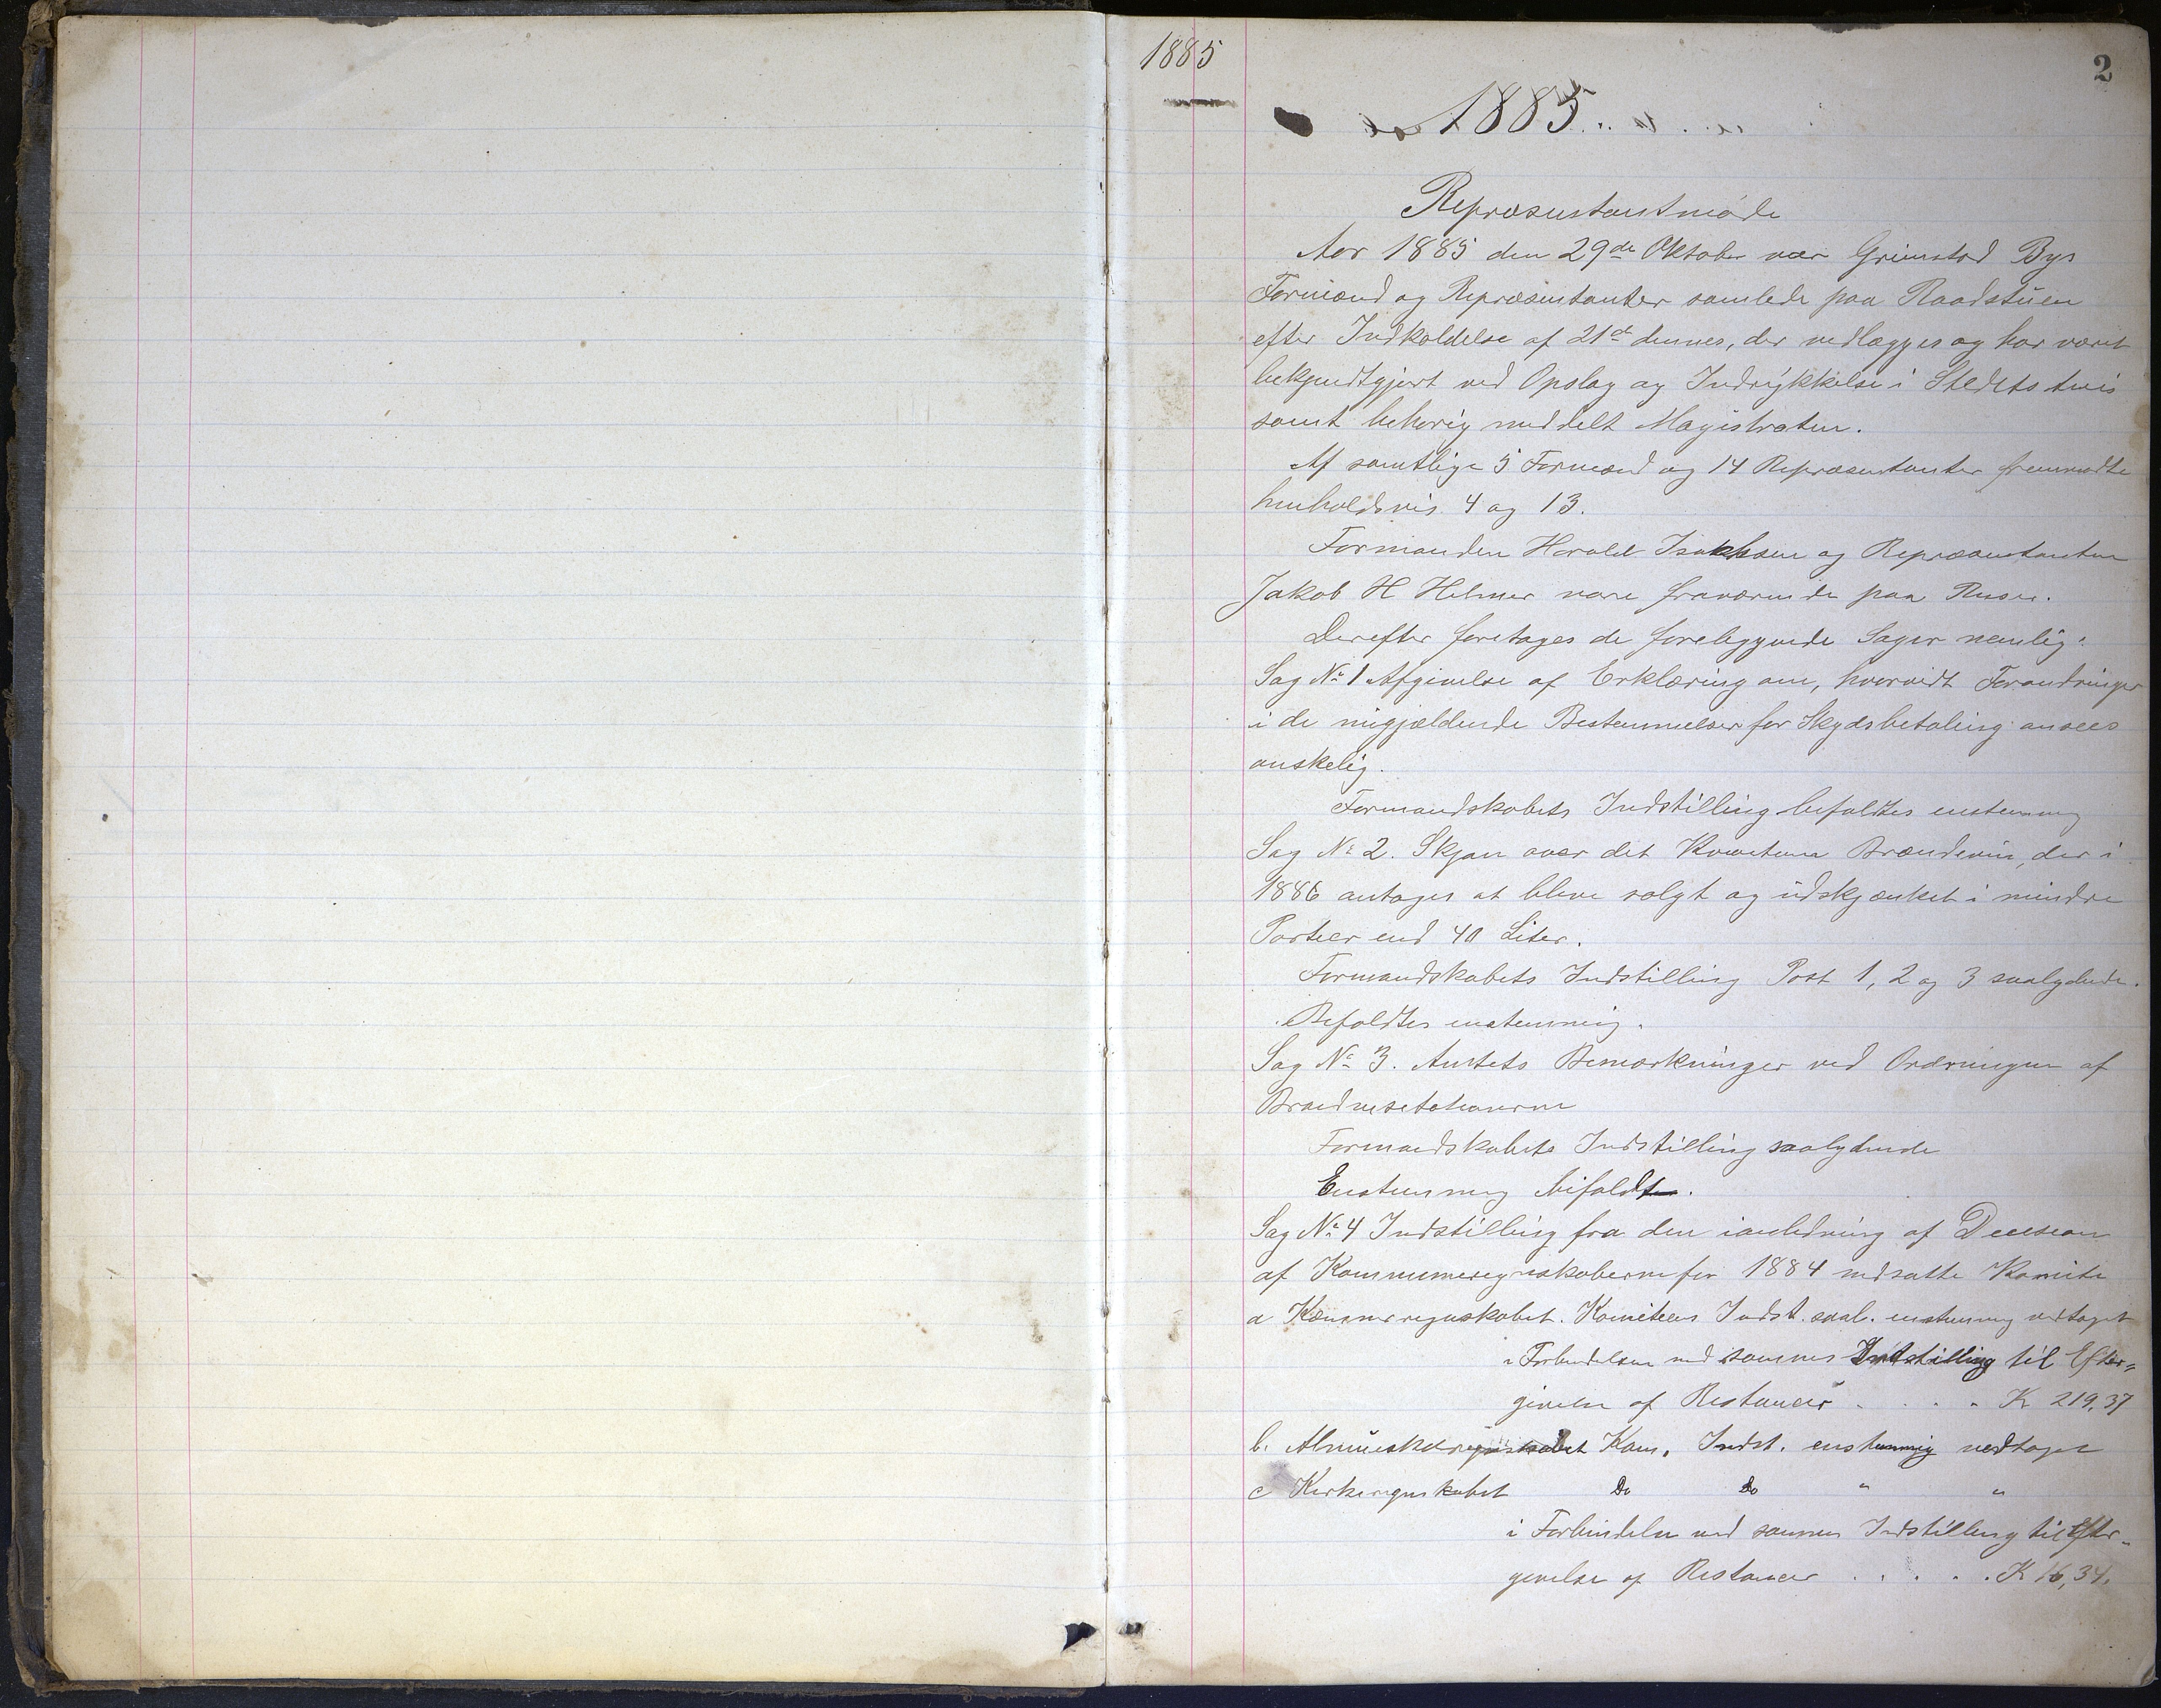 1885
2
1885
Repræsentantmøde
Aar 1885 den 29de Oktober var Grimstad Bys
Formænd og Repræsentanter samlede paa Raadstuen
efter Indkaldelse af 21de dennes, der vedlægges og har været
bekjendtgjort ved Opslag og Indrykkelse i Stedets Avis
samt behørig meddelt Magistraten.
Af samtlige 5 Formænd og 14 Repræsentanter fremmødte
henholdsvis 4 og 13.
Formanden Harald Isakhsen og Repræsentanten
Jakob H Helmer vare fraværende paa Reiser.
Derefter foretages de foreliggende Sager nemlig:
Sag No 1 Afgivelse af Erklæring om, hvorvidt Forandringer
i de nugjældende Bestemmelser for Skydsbetaling ansees
ønskelig.
Formandskabets Indstilling bifaldtes enstemmig
Sag No 2. Skjøn over det Kvantum Brændevin, der i
1886 antages at blive solgt og udskjænket i mindre
Partier end 40 Liter.
Formandskabets Indstilling Post 1, 2 og 3 saalydende.
Bifaldtes enstemmig.
Sag No 3. Amtets Bemærkninger ved Ordningen af
Formandskabets Indstilling saalydende
Enstemmig bifaldt.
Sag No 4 Indstilling fra den i anledning af Decision
af Kommuneregnskaberne for 1884 nedsatte Komite
a Kæmnerregnskabet. Komiteens Indst. saal. enstemmig vedtaget
i Forbindelse med sammes Indstilling til Efter=
givelse af Restancer . . . . K 219,37
b. Almueskoleregnskabet Kom. Indst. enstemmig vedtaget
c Kirkeregnskabet Do Do " "
i Forbindelse med sammes Indstilling til Efter-
givelse af Restancer . . . . . K 16,34.